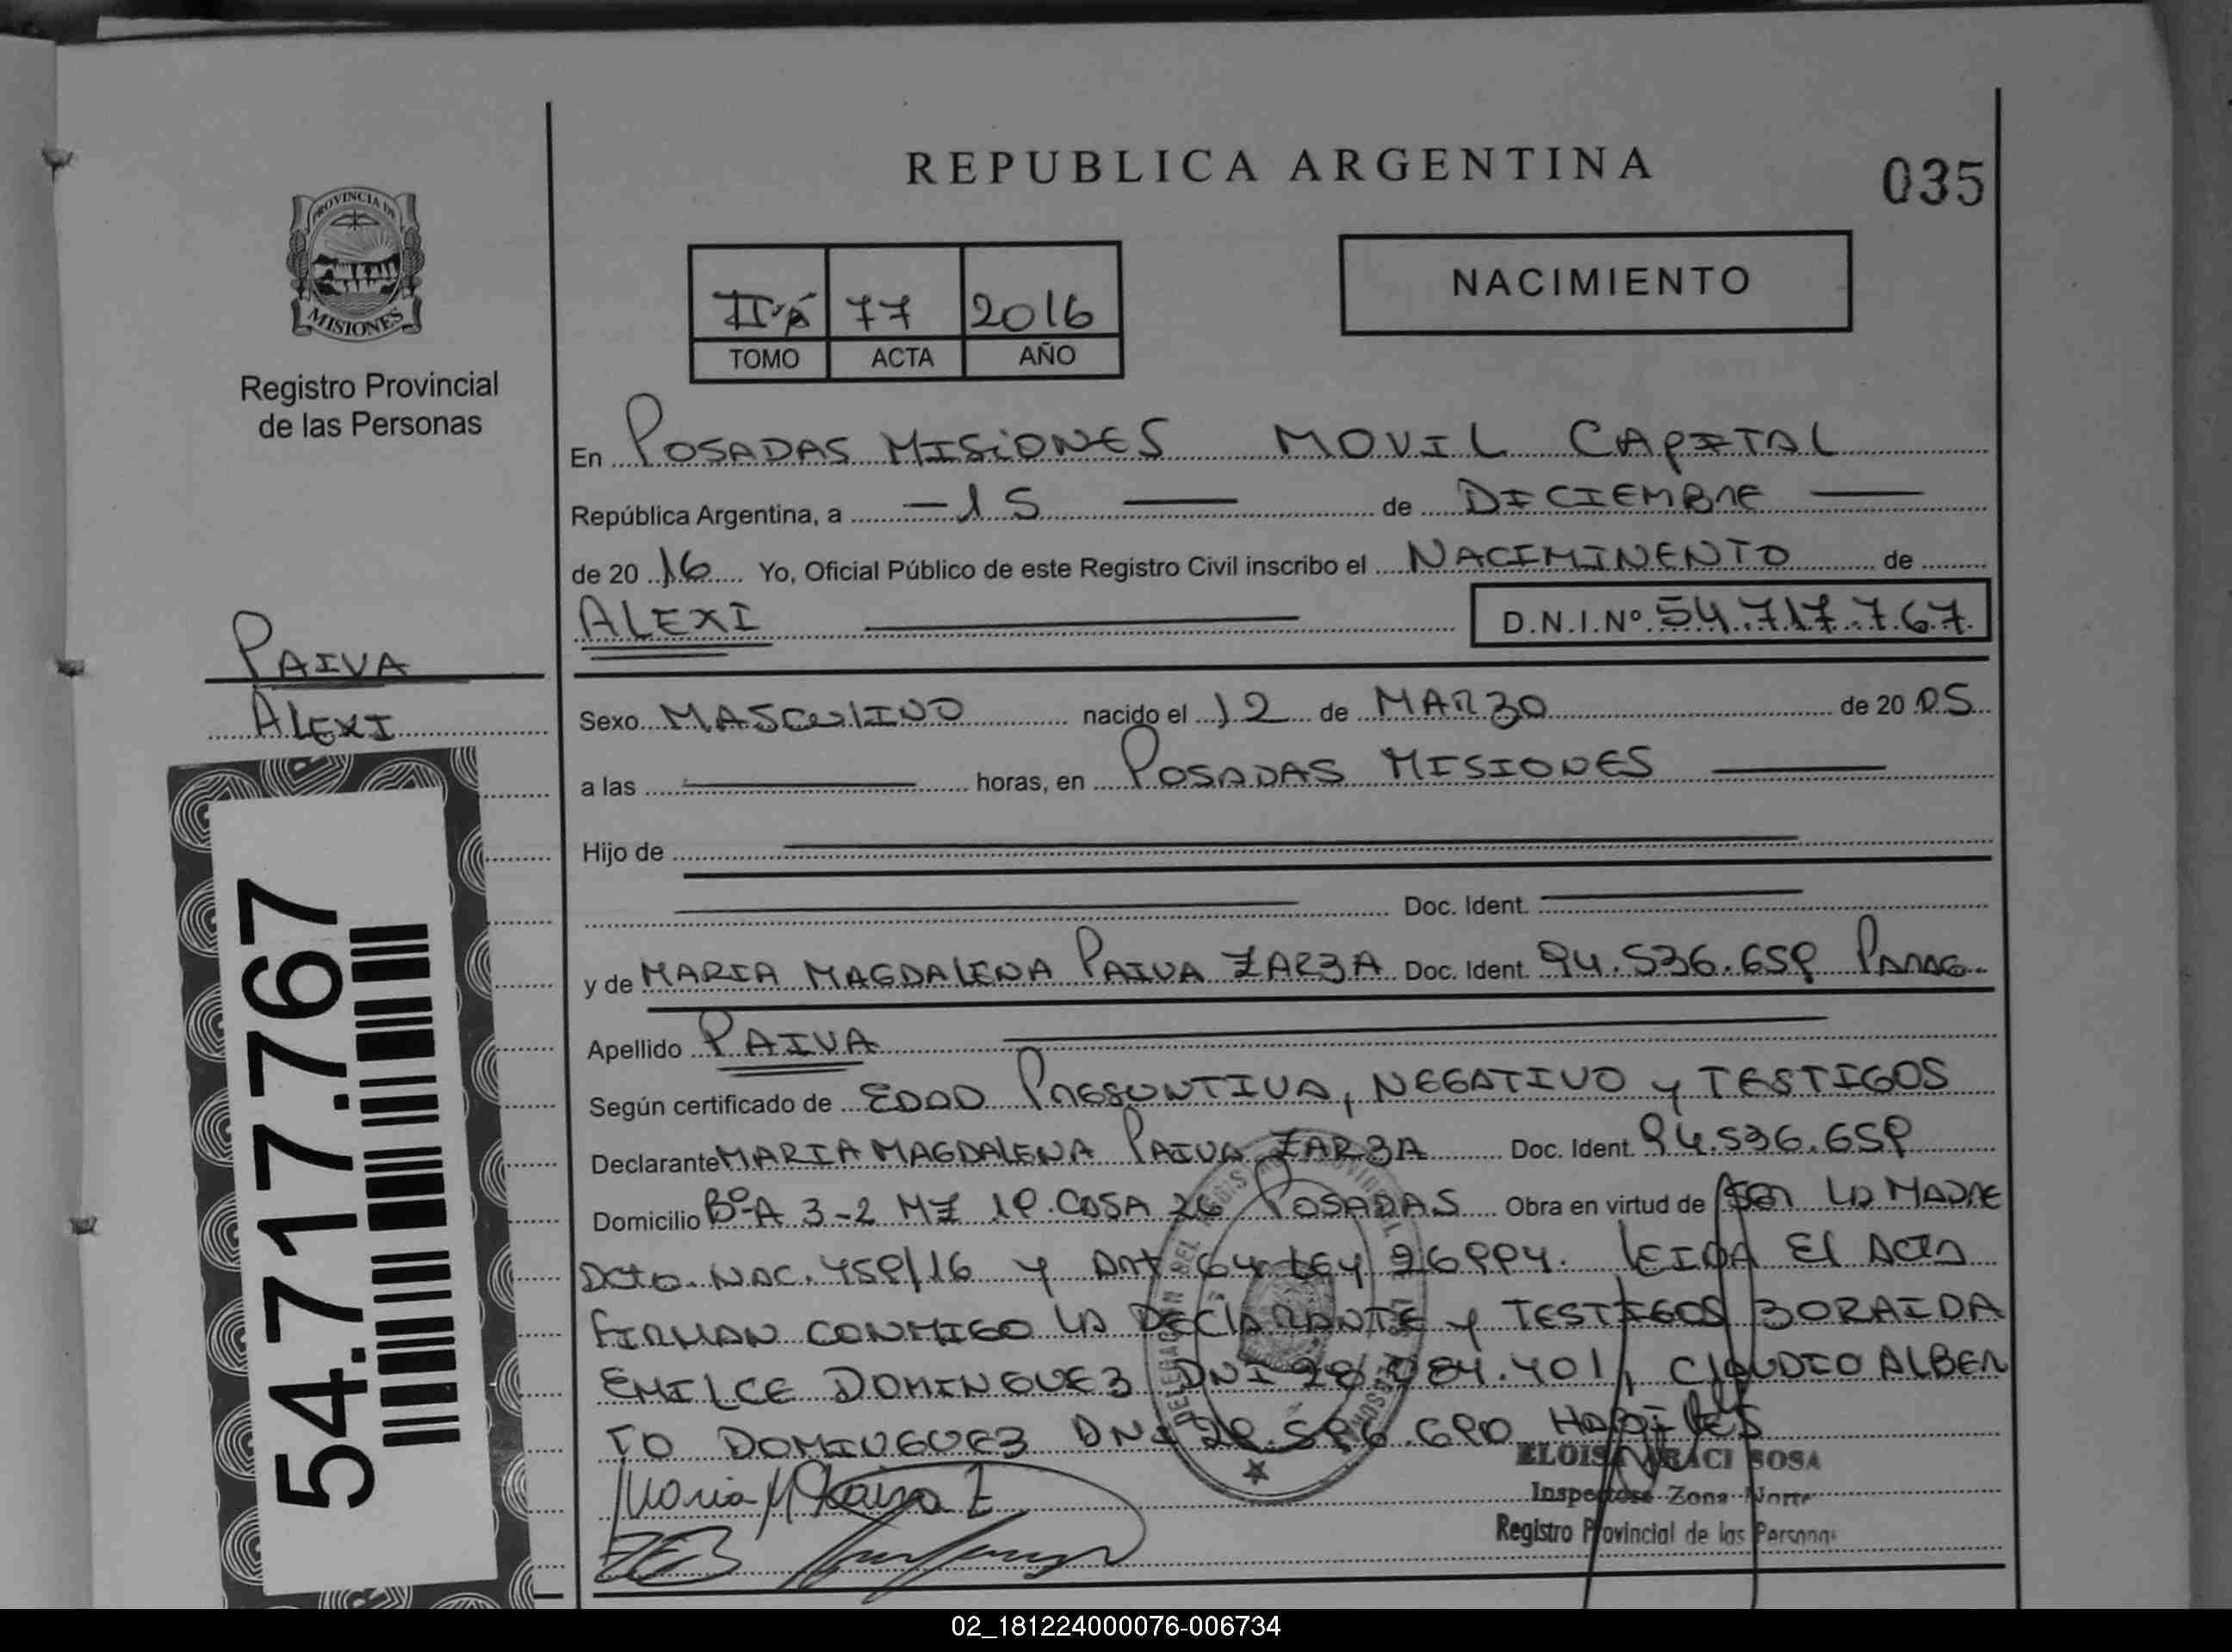 REPUBLICA ARGENTINA
035
PROVINCIA DE
MISIONES
Registro Provincial
de las Personas
77 2016
TOMO ACTA AÑO
NACIMIENTO
En POSADAS MISIONES MOVIL CAPITAL
República Argentina, a - 15 — de DICIEMBRE —
de 2016 Yo, Oficial Público de este Registro Civil inscribo el NACIMINENTO de
ALEXI
D.N.I.Nº 54.717.767
PAIVA
ALEXI
Sexo MASCULINO nacido el 12 de MARZO de 2005
a las — horas, en POSADAS MISIONES —
Hijo de
Doc. Ident.
y de MARIA MAGDALENA PAIVA ZARZA Doc. Ident. 94.536.659 PARAG.
Apellido PAIVA
Según certificado de EDAD PRESUNTIVA, NEGATIVO y TESTIGOS
Declarante MARIA MAGDALENA PAIVA ZARZA Doc. Ident. 94.536.659
Domicilio Bº A 3-2 MZ 19 CASA 26 POSADAS Obra en virtud de SER LA MADRE
DCTO. NAC. 459/16 y ART 64 LEY 26994. LEIDA El ACTA
FIRMAN CONMIGO LA DECLARANTE y TESTIGOS ZORAIDA
EMILCE DOMINGUEZ DNI 401, CLAUDIO ALBER
TO DOMINGUEZ DNI 29.596.690 HABILES
Maria M Paiva Z
ZED
ELOISA ARACI SOSA
Inspectora Zona Norte
Registro Provincial de las Personas
54.717.767
02_181224000076-006734